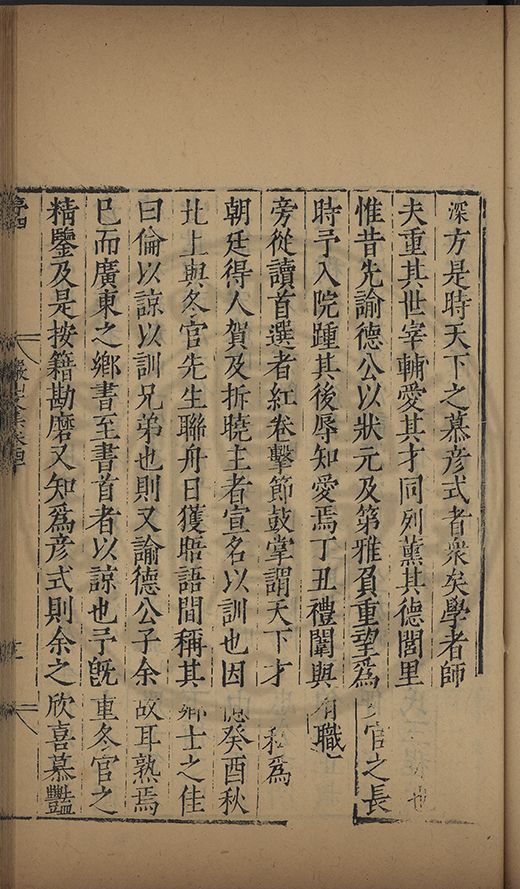 深方是時天下之慕彥式者衆矣學者師
夫重其世宰輔愛其才同列薰其德閭里
惟昔先諭德公以狀元及第雅負重望爲官之長
時予入院踵其後辱知愛焉丁丑禮闈與有職
旁從讀首選者紅卷擊節鼓掌謂天下才私爲
朝廷得人賀及拆曉主者宣名以訓也因憶癸酉秋
北上與冬官先生聯舟日獲晤語間稱其鄉士之佳
曰倫以諒以訓兄弟也則又諭德公子余故耳熟焉
巳而廣東之鄉書至書首者以諒也予旣重冬官之
精鑒及是按籍勘磨又知爲彥式則余之欣喜慕豔